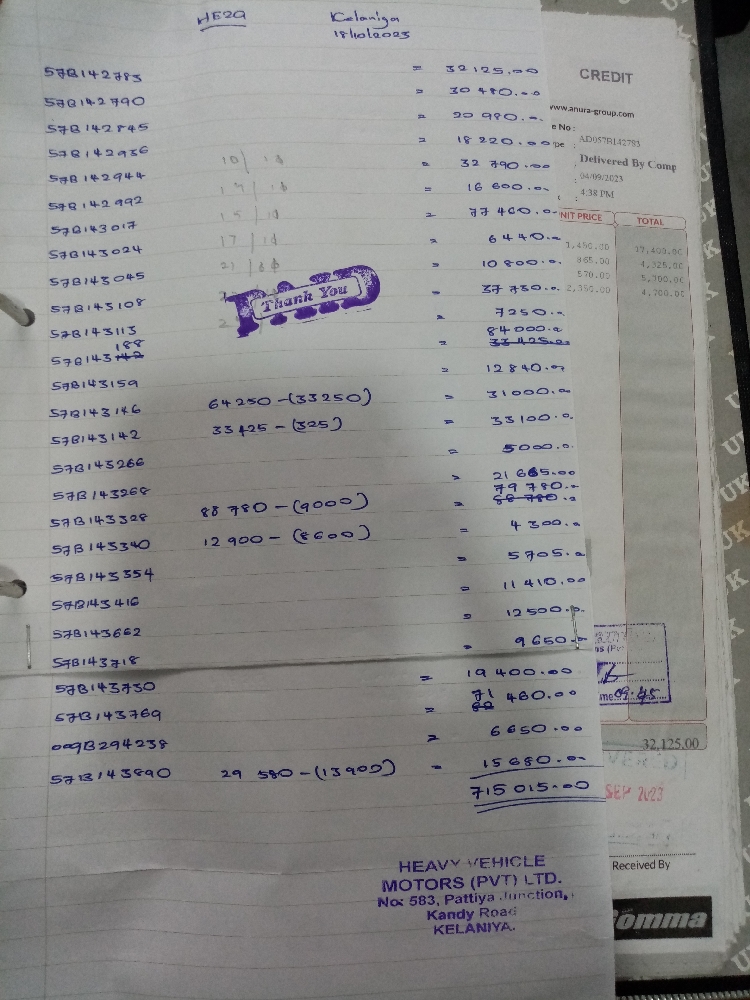 HE29 Kelaniya
18/10/2023
57B142783 = 32125.00
57B142790 = 30480.00
57B142845 = 20980.00
57B142936 = 18220.00
57B142944 = 32790.00
57B142992 = 16600.00
57B143017 = 77460.00
57B143024 = 6440.00
57B143045 = 10800.00
57B143108 = 37730.00
57B143113 = 7250.00
188 84000.00
57B143142 = 33425.00
57B143159 = 12840.00
57B143146 64250-(33250) = 31000.00
57B143142 33425-(325) = 33100.00
57B143266 = 5000.00
57B143268 = 21665.00
79780.00
57B143328 88780-(9000) = 88780.00
57B143340 12900-(8600) = 4300.00
57B143354 = 5705.00
57B143416 = 11410.00
57B143662 = 12500.00
57B143718 = 9650.00
57B143730 = 19400.00
57B143769 = 71460.00
009B294238 = 6650.00
57B143890 29580-(13900) = 15680.00
715015.00
PAID
Thank You
HEAVY VEHICLE
MOTORS (PVT) LTD.
No: 583, Pattiya Junction,
Kandy Road
KELANIYA.
CREDIT
www.anura-group.com
e No :
AD057B142783
Delivered By Comp
04/09/2023
4:38 PM
NIT PRICE TOTAL
1,450.00 17,400.00
865.00 4,325.00
570.00 5,700.00
2,350.00 4,700.00
09:45
32,125.00
SEP 2023
Received By
Comma